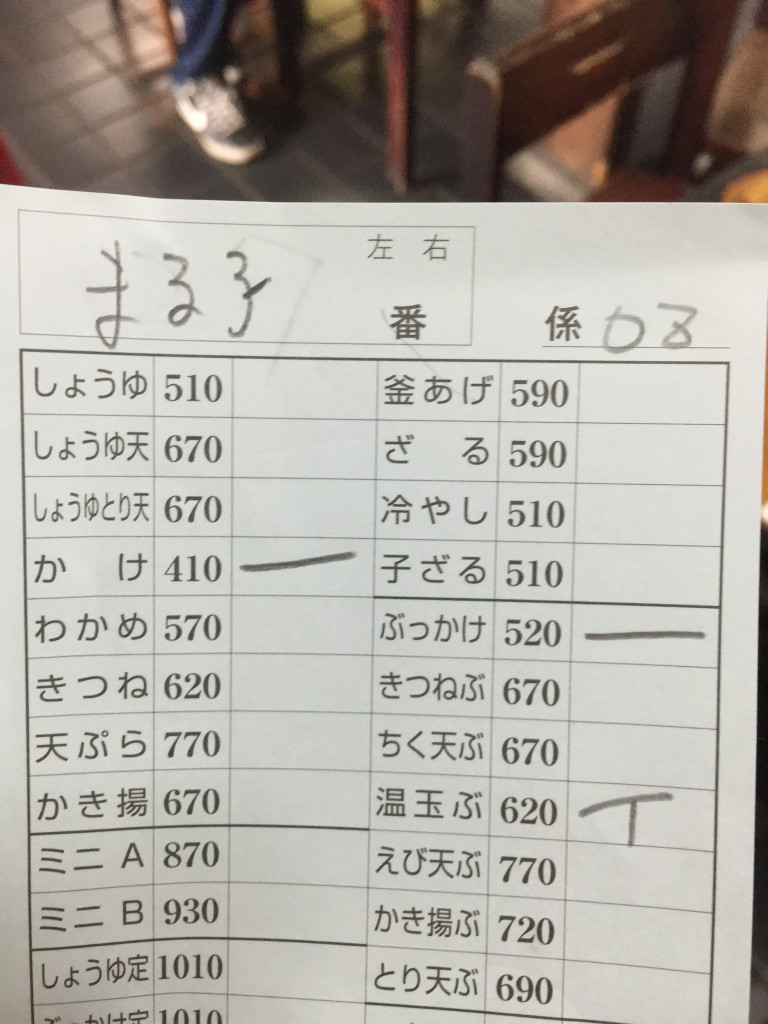 左 右
まる子
番 係 08
しょうゆ 510 釜あげ 590
しょうゆ天 670 ざる 590
しょうゆとり天 670 冷やし 510
かけ 410 一 子ざる 510
わかめ 570 ぶっかけ 520 一
きつね 620 きつねぶ 670
天ぷら 770 ちく天ぶ 670
かき揚 670 温玉ぶ 620 T
ミニA 870 えび天ぶ 770
ミニB 930 かき揚ぶ 720
しょうゆ定 1010 とり天ぶ 690
ぶっかけ定 1010